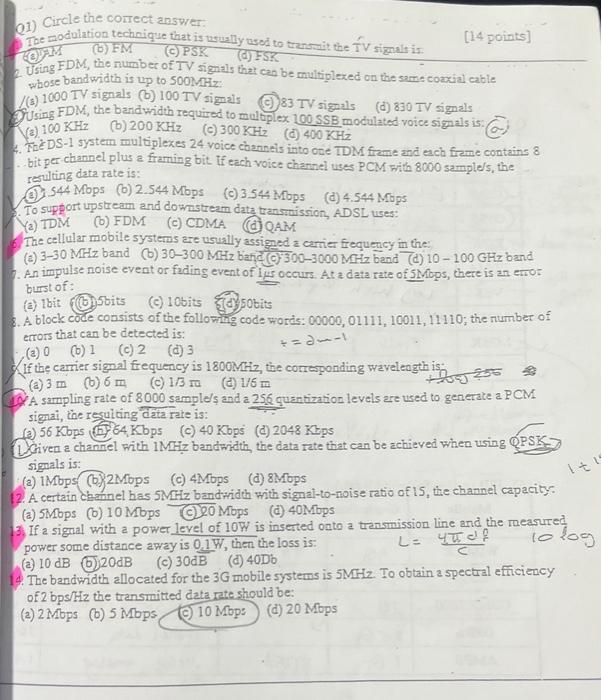 Q1) Circle the correct answer: [14 points]
The modulation technique that is usually used to transmit the TV signals is:
(a) AM (b) FM (c) PSK (d) FSK
2. Using FDM, the number of TV signals that can be multiplexed on the same coaxial cable
whose bandwidth is up to 500MHz:
(a) 1000 TV signals (b) 100 TV signals (c) 83 TV signals (d) 830 TV signals
Using FDM, the bandwidth required to multiplex 100 SSB modulated voice signals is: a
(a) 100 KHz (b) 200 KHz (c) 300 KHz (d) 400 KHz
4. The DS-1 system multiplexes 24 voice channels into one TDM frame and each frame contains 8
bit per channel plus a framing bit. If each voice channel uses PCM with 8000 sample/s, the
resulting data rate is:
(a) 1.544 Mbps (b) 2.544 Mbps (c) 3.544 Mbps (d) 4.544 Mbps
To support upstream and downstream data transmission, ADSL uses:
(a) TDM (b) FDM (c) CDMA (d) QAM
6. The cellular mobile systems are usually assigned a carrier frequency in the:
(a) 3-30 MHz band (b) 30-300 MHz band (c) 300-3000 MHz band (d) 10 - 100 GHz band
7. An impulse noise event or fading event of 1µs occurs. At a data rate of 5Mbps, there is an error
burst of:
(a) 1bit (b) 5bits (c) 10bits (d) 50bits
8. A block code consists of the following code words: 00000, 01111, 10011, 11110; the number of
errors that can be detected is:
(a) 0 (b) 1 (c) 2 (d) 3
If the carrier signal frequency is 1800MHz, the corresponding wavelength is:
(a) 3 m (b) 6 m (c) 1/3 m (d) 1/6 m
10. A sampling rate of 8000 sample/s and a 256 quantization levels are used to generate a PCM
signal, the resulting data rate is:
(a) 56 Kbps (b) 64 Kbps (c) 40 Kbps (d) 2048 Kbps
11. Given a channel with 1MHz bandwidth, the data rate that can be achieved when using QPSK
signals is:
(a) 1Mbps (b) 2Mbps (c) 4Mbps (d) 8Mbps
12. A certain channel has 5MHz bandwidth with signal-to-noise ratio of 15, the channel capacity:
(a) 5Mbps (b) 10 Mbps (c) 20 Mbps (d) 40Mbps
13. If a signal with a power level of 10W is inserted onto a transmission line and the measured
power some distance away is 0.1W, then the loss is: L = 4πdf/c 10 log
(a) 10 dB (b) 20dB (c) 30dB (d) 40Db
14. The bandwidth allocated for the 3G mobile systems is 5MHz. To obtain a spectral efficiency
of 2 bps/Hz the transmitted data rate should be:
(a) 2 Mbps (b) 5 Mbps (c) 10 Mbps (d) 20 Mbps